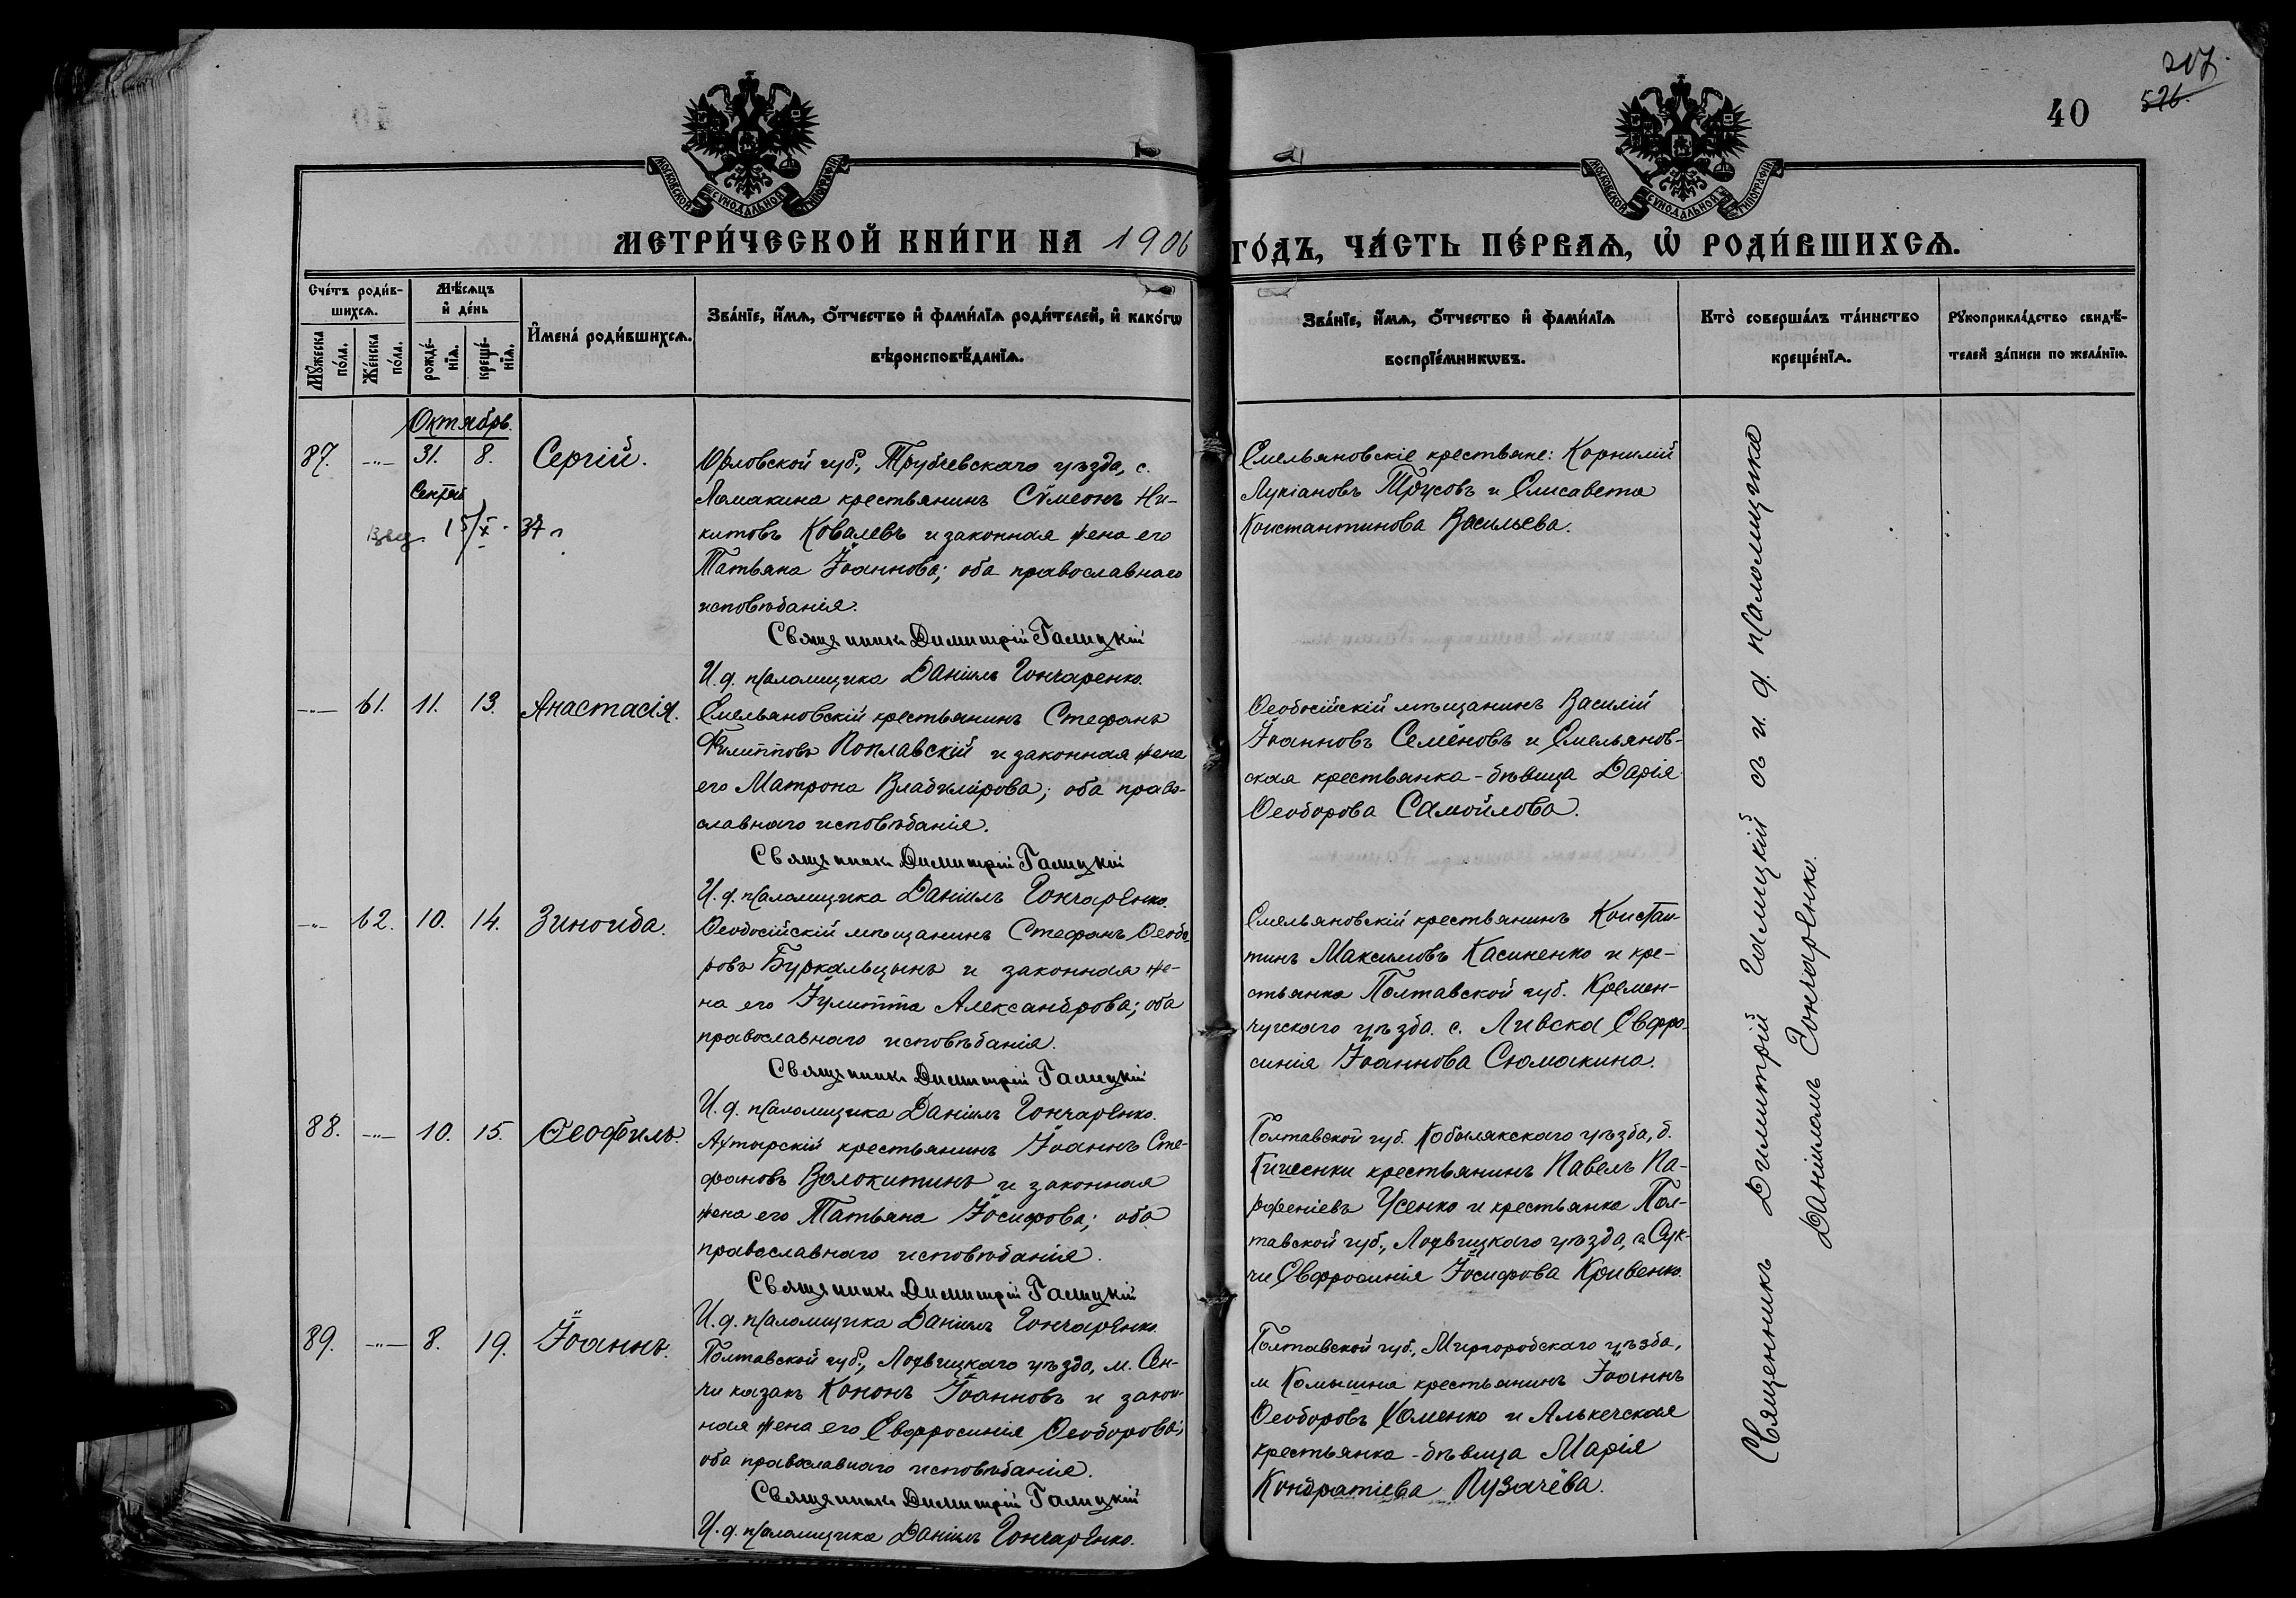 207.
526.
40
МОСКОВСКОЙ СѴНОДАЛЬНОЙ ТИПОГРАФІИ
МОСКОВСКОЙ СѴНОДАЛЬНОЙ ТИПОГРАФІИ
МЕТРИ́ЧЕСКОЙ КНИ́ГИ НА 1906 ГО́ДЪ, ЧА́СТЬ ПЕ́РВАѦ, Ѽ РОДИ́ВШИХСѦ.
Сче́тъ роди́в-
шихсѧ.
Мꙋ́жеска по́ла.
Же́нска по́ла.
Мѣ́сѧцъ и҆ де́нь
рожде́-нїѧ.
креще́-нїѧ.
И҆мена̀ роди́вшихсѧ.
Зва́нїе, и҆́мѧ, ѻ҆́тчество и҆ фами́лїѧ роди́телей, и҆ како́гѡ
вѣроисповѣ́данїѧ.
Зва́нїе, и҆́мѧ, ѻ҆́тчество и҆ фами́лїѧ
воспрїе́мникѡвъ.
Кто̀ соверша́лъ та́инство
креще́нїѧ.
Рꙋкоприкла́дство свидѣ́-
телей за́писи по жела́нїю.
Октябрь.
87. -"- 31. 8. Сергій.
Сентяб
15/X 37 г
Орловской губ., Трубчевскаго уѣзда, с.
Ломакина крестьянинъ Сѵмеонъ Ни-
китовъ Ковалевъ и законная жена его
Татьяна Іоаннова; оба православнаго
исповѣданія.
Священникъ Димитрій Галицкій
И. д. псаломщика Даніилъ Гончаренко.
Емельяновскіе крестьяне: Корнилій
Лукіановъ Трусовъ и Елисавета
Константинова Васильева.
-"- 61. 11. 13. Анастасія.
Емельяновскій крестьянинъ Стефанъ
Филипповъ Поплавскій и законная жена
его Матрона Владимірова; оба право-
славнаго исповѣданія.
Священникъ Димитрій Галицкій
И. д. псаломщика Даніилъ Гончаренко.
Ѳеодосійскій мѣщанинъ Василій
Іоанновъ Семёновъ и Емельянов-
ская крестьянка-дѣвица Дарія
Ѳеодорова Самойлова.
-"- 62. 10. 14. Зиноида.
Ѳеодосійскій мѣщанинъ Стефанъ Ѳеодо-
ровъ Буркальцынъ и законная же-
на его Іулитта Александрова; оба
православнаго исповѣданія.
Священникъ Димитрій Галицкій
И. д. псаломщика Даніилъ Гончаренко.
Емельяновскій крестьянинъ Констан-
тинъ Максимовъ Касиненко и кре-
стьянка Полтавской губ. Кремен-
чугскаго уѣзда. с. Ливска Евфро-
синія Іоаннова Сюмакина.
88. -"- 10. 15. Ѳеофилъ.
Ахтырскій крестьянинъ Іоаннъ Сте-
фановъ Волокитинъ и законная
жена его Татьяна Іосифова; оба
православнаго исповѣданія.
Священникъ Димитрій Галицкій
И. д. псаломщика Даніилъ Гончаренко.
Полтавской губ. Кобелякскаго уѣзда, д.
крестьянинъ Павелъ Па-
рфеніевъ Усенко и крестьянка Пол-
тавской губ., Лохвицкаго уѣзда,
Евфросинія Іосифова Кривенко.
89. -"- 8. 19. Іоаннъ.
Полтавской губ., Лохвицкаго уѣзда, м. Сен-
чи казакъ Кононъ Іоанновъ и закон-
ная жена его Евфросинія Ѳеодорова;
оба православнаго исповѣданія.
Священникъ Димитрій Галицкій
И. д. псаломщика Даніилъ Гончаренко.
Полтавской губ., Миргородскаго уѣзда,
м Комышна крестьянинъ Іоаннъ
Ѳеодоровъ Хоменко и Алькечская
крестьянка-дѣвица Марія
Кондратіева Пузачёва.
Священникъ Димитрій Галицкій съ и. д. псаломщика
Даніиломъ Гончаренко.